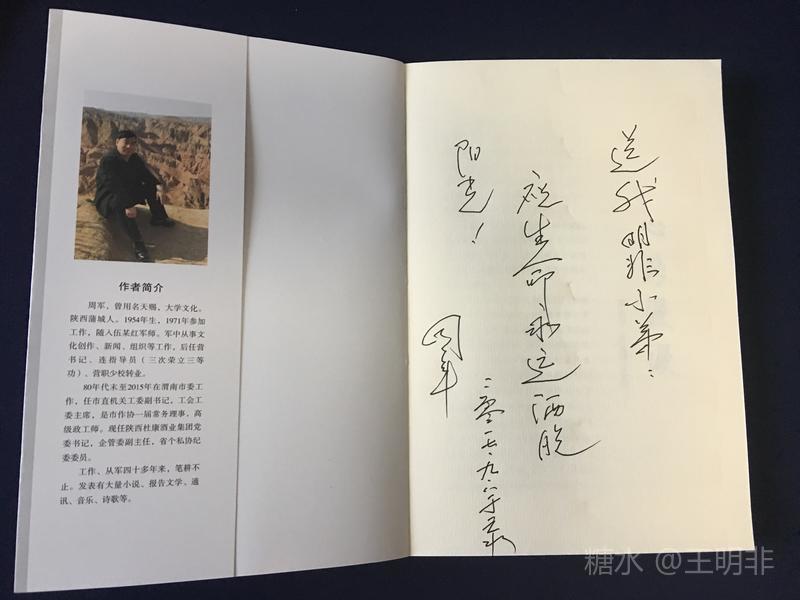 作者简介
周军，曾用名天赐，大学文化。
陕西蒲城人。1954年生，1971年参加
工作，随入伍某红军师。军中从事文
化创作、新闻、组织等工作，后任营
书记、连指导员（三次荣立三等
功）、营职少校转业。
80年代末至2015年在渭南市委工
作，任市直机关工委副书记，工会工
委主席，是市作协一届常务理事，高
级政工师。现任陕西杜康酒业集团党
委书记，企管委副主任，省个私协纪
委委员。
工作、从军四十多年来，笔耕不
止。发表有大量小说、报告文学、通
讯、音乐、诗歌等。
送我明非小弟：
生命永远洒脱
阳光！
周军
二零一七、九、八于
糖水 @王明非